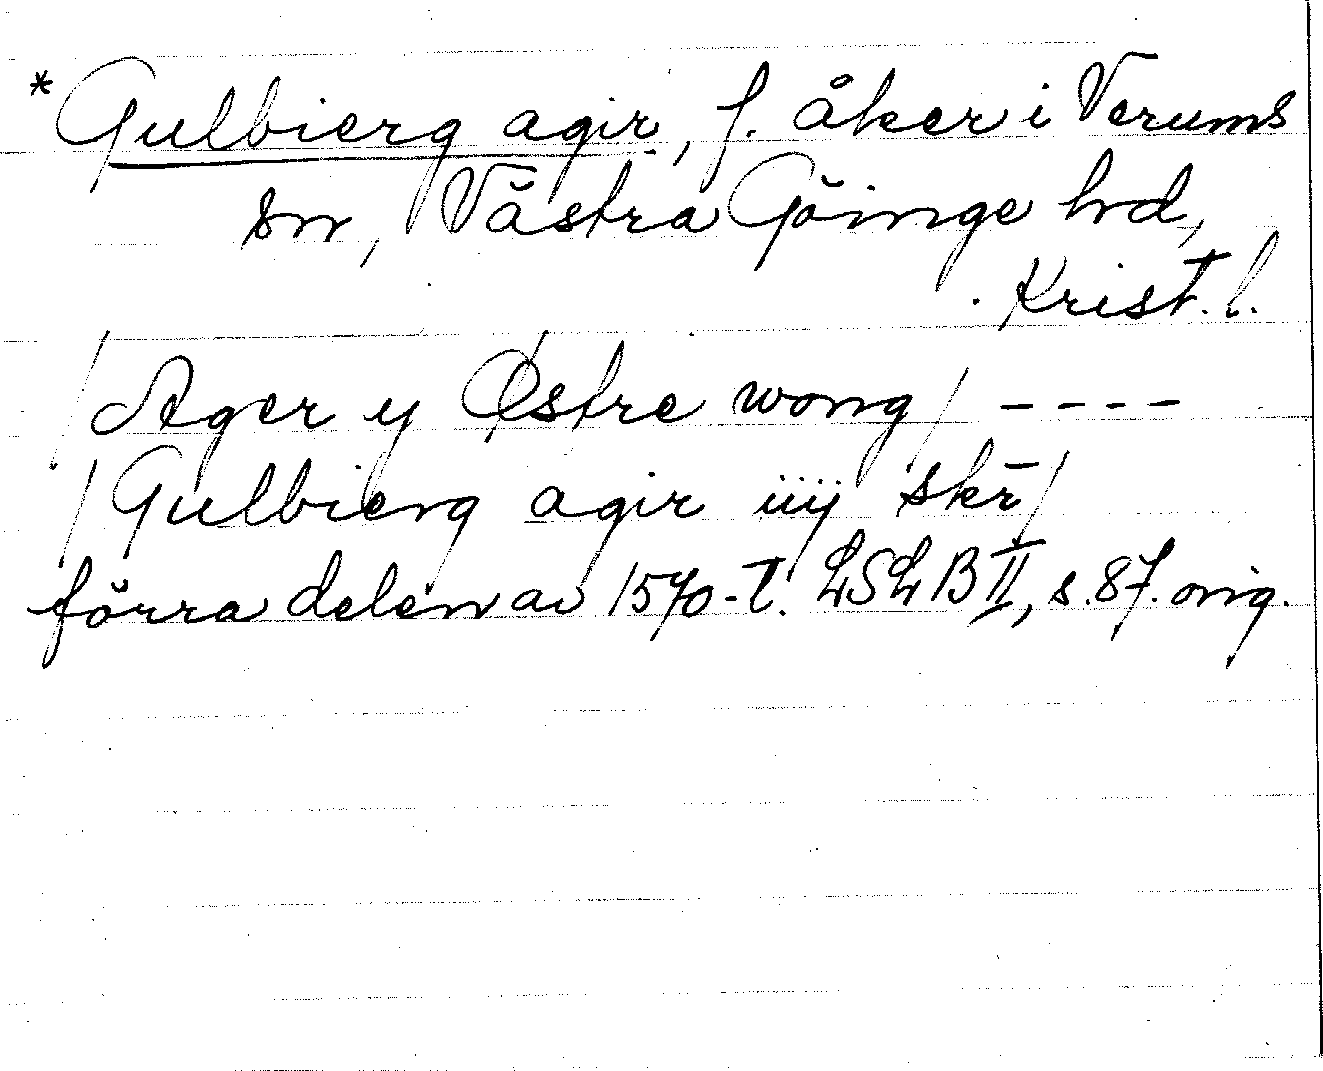 *Gulbierg agir, f. åker i Verums
sn, Västra Göinge hd,
Krist. l.
/Ager y Østre wong/ ----
/Gulbierg agir iiij skr̄/
förra delen av 1570-t. LSLB II, s. 87. orig.